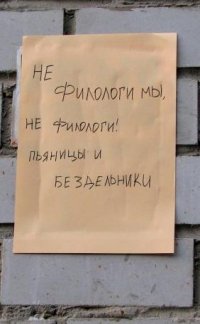 НЕ
ФИЛОЛОГИ МЫ,
НЕ ФИЛОЛОГИ!
ПЬЯНИЦЫ И
БЕЗДЕЛЬНИКИ